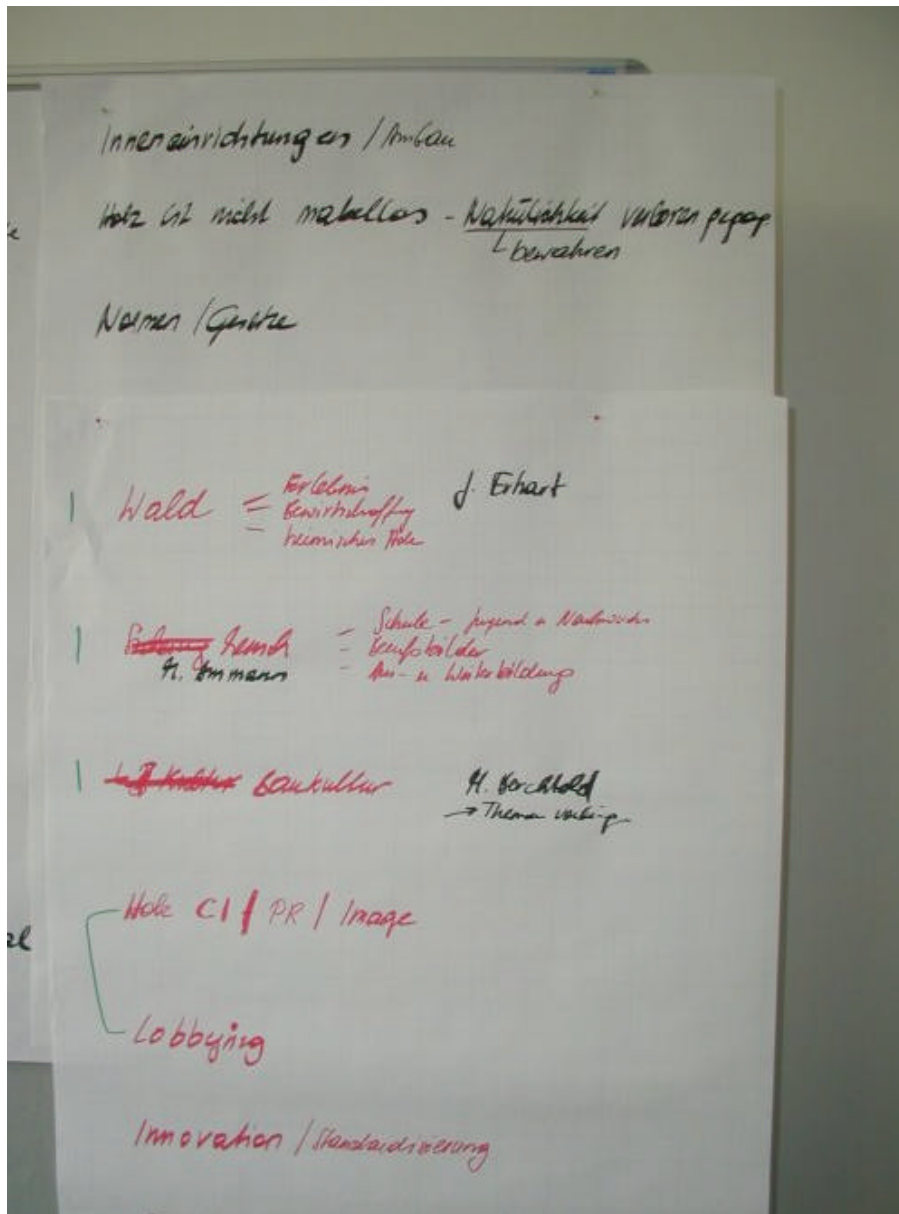 Inneneinrichtungen / Ambau
Holz ist nicht makellos - Natürlichkeit verloren gegang
bewahren
Normen / Gesetze
Wald = Erlebnis
J. Erhart
- Bewirtschaftung
- heimisches Holz
Bildung Mensch
- Schule - Jugend u Nachwuchs
- Berufsbilder
- Aus- u Weiterbildung
H. Ammann
Kultur Baukultur
H. Berchtold
→ Themen
Holz CI / PR / Image
Lobbying
Innovation / Standardisierung